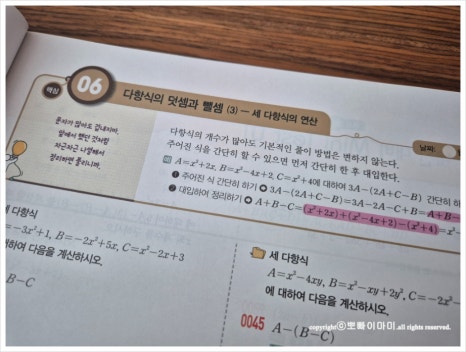 핵심
06
다항식의 덧셈과 뺄셈 (3) — 세 다항식의 연산
날짜:
문자가 많아도 겁내지마.
앞에서 했던 것처럼
차근차근 나열해서
정리하면 풀리니까.
다항식의 개수가 많아도 기본적인 풀이 방법은 변하지 않는다.
주어진 식을 간단히 할 수 있으면 먼저 간단히 한 후 대입한다.
예 A=x²+2x, B=x²-4x+2, C=x²+4에 대하여 3A-(2A+C-B) 간단히 하
❶ 주어진 식 간단히 하기 ➔ 3A-(2A+C-B)=3A-2A-C+B=A+B-
❷ 대입하여 정리하기 ➔ A+B-C=(x²+2x)+(x²-4x+2)-(x²+4)=x²
세 다항식
=-3x²+1, B=-2x²+5x, C=x²-2x+3
대하여 다음을 계산하시오.
B-C
세 다항식
A=x²-4xy, B=x²-xy+2y², C=-2x²-
에 대하여 다음을 계산하시오.
0045 A-(B-C)
copyrightⓒ뽀빠이아미.all rights reserved.